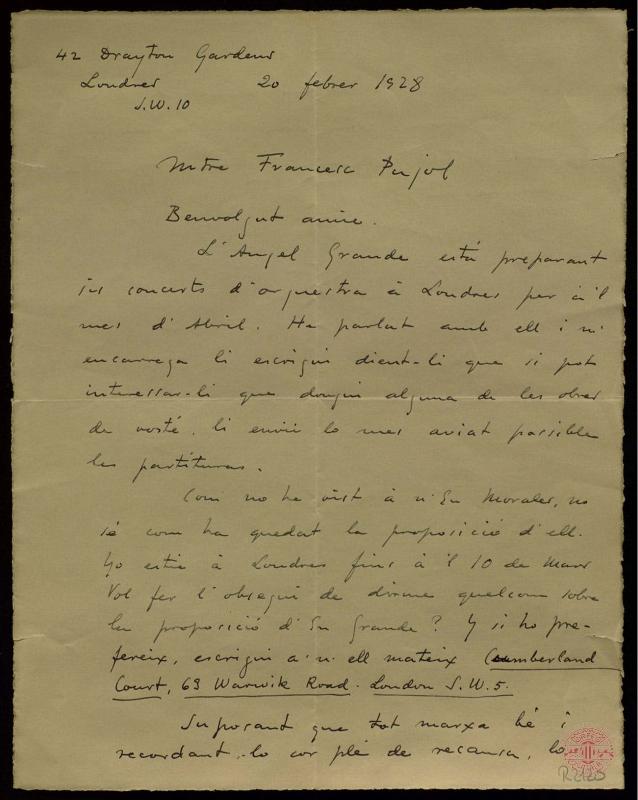 42 Drayton Gardens
Londres 20 febrer 1928
S.W. 10
Mtre Francesc Pujol
Benvolgut amic.
L'Angel Grande está preparant
sis concerts d'orquestra à Londres per à'l
mes d'Abril. He parlat amb ell i m'
encarrega li escrigui dient-li que si pot
interessar-li que dongui alguna de les obres
de vosté, li envii lo mes aviat possible
les partituras.
Com no he vist à n'En Morales, no
sé com ha quedat la proposició d'ell.
Yo estic à Londres fins à'l 10 de Mars
Vol fer l'obsequi de dirme quelcom sobre
la proposició d'En Grande? Y si ho pre-
fereix, escrigui a n'ell mateix Cumberland
Court, 63 Warwik Road. London S.W.5.
Suposant que tot marxa bé i
recordant-lo cor plé de recansa, lo
R2120